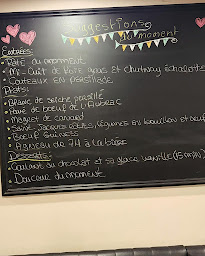 Suggestions
du moment
Entrées:
• Pâté du moment
• Mi-Cuit de Foie gras et Chutney échalote
• Couteaux en persillade
Plats:
• Blanc de seiche persillé
• Foie de boeuf de l'Aubrac
• Magret de canard
• Saint Jacques, légumes en bouillon et
• Boeuf suivers
• Agneau de 7H à la
Desserts:
• Coulant au chocolat et sa glace vanille (15 min)
• Douceur du moment